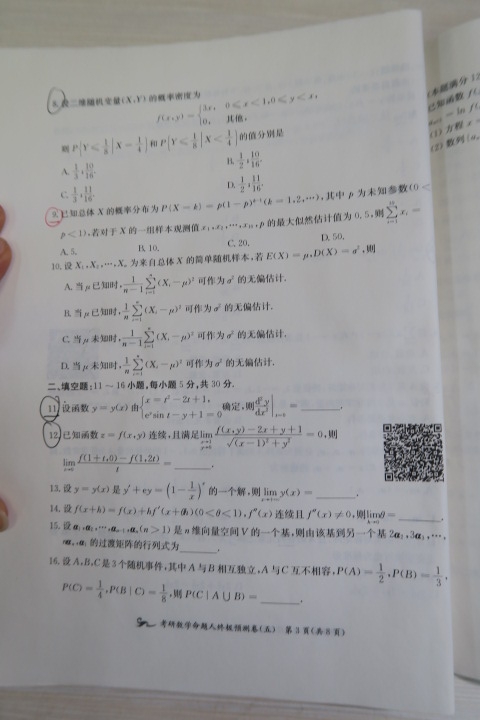 8. 设二维随机变量(X,Y)的概率密度为
f(x,y) = {3x, 0≤x<1,0≤y<x,
0, 其他,
则 P{Y≤1/8 | X=1/4} 和 P{Y≤1/8 | X<1/4} 的值分别是
A. 1/2, 10/16. B. 1/2, 10/16.
C. 1/2, 11/16. D. 1/2, 11/16.
9. 已知总体 X 的概率分布为 P{X=k}=p(1-p)^{k-1}(k=1,2,…),其中 p 为未知参数(0<
p<1),若对于 X 的一组样本观测值 x₁,x₂,…,x₁₀,p 的最大似然估计值为 0.5,则 ∑_{i=1}^{10} x_i =
A. 5. B. 10. C. 20. D. 50.
10. 设 X₁,X₂,…,Xₙ 为来自总体 X 的简单随机样本,若 E(X)=μ,D(X)=σ²,则
A. 当 μ 已知时, 1/(n-1) ∑_{i=1}^{n}(X_i-μ)² 可作为 σ² 的无偏估计.
B. 当 μ 已知时, 1/n ∑_{i=1}^{n}(X_i-μ)² 可作为 σ² 的无偏估计.
C. 当 μ 未知时, 1/(n-1) ∑_{i=1}^{n}(X_i-μ)² 可作为 σ² 的无偏估计.
D. 当 μ 未知时, 1/n ∑_{i=1}^{n}(X_i-μ)² 可作为 σ² 的无偏估计.
二、填空题:11～16 小题,每小题 5 分,共 30 分.
11. 设函数 y=y(x) 由 {x=t²-2t+1,
e^y sin t-y+1=0 确定,则 d²y/dx² |_{t=0} = ______.
12. 已知函数 z=f(x,y) 连续,且满足 lim_{x→1,y→0} (f(x,y)-2x+y+1)/√((x-1)²+y²) =0,则
lim_{t→0} (f(1+t,0)-f(1,2t))/t = ______.
13. 设 y=y(x) 是 y′+ey=(1-1/x)^x 的一个解,则 lim_{x→+∞} y(x) = ______.
14. 设 f(x+h)=f(x)+hf′(x+θh)(0<θ<1),f″(x) 连续且 f″(x)≠0,则 lim_{h→0} θ= ______.
15. 设 α₁,α₂,…,αₙ₋₁,αₙ(n>1) 是 n 维向量空间 V 的一个基,则由该基到另一个基 2α₂,3α₃,…,
nαₙ,α₁ 的过渡矩阵的行列式为 ______.
16. 设 A,B,C 是 3 个随机事件,其中 A 与 B 相互独立,A 与 C 互不相容,P(A)=1/2,P(B)=1/3,
P(C)=1/4,P(B|C)=1/8,则 P(C|A∪B)= ______.
考研数学命题人终极预测卷(五) 第 3 页(共 8 页)
本题满分 12
已知函数 f(
= ln f(
(1) 方程 x =
(2) 数列